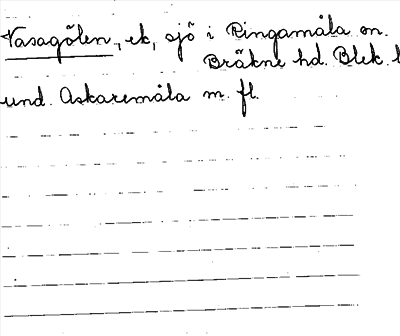 Vasagölen, ek, sjö i Ringamåla sn.
Bräkne hd. Blek. l
und. Askaremåla m. fl.